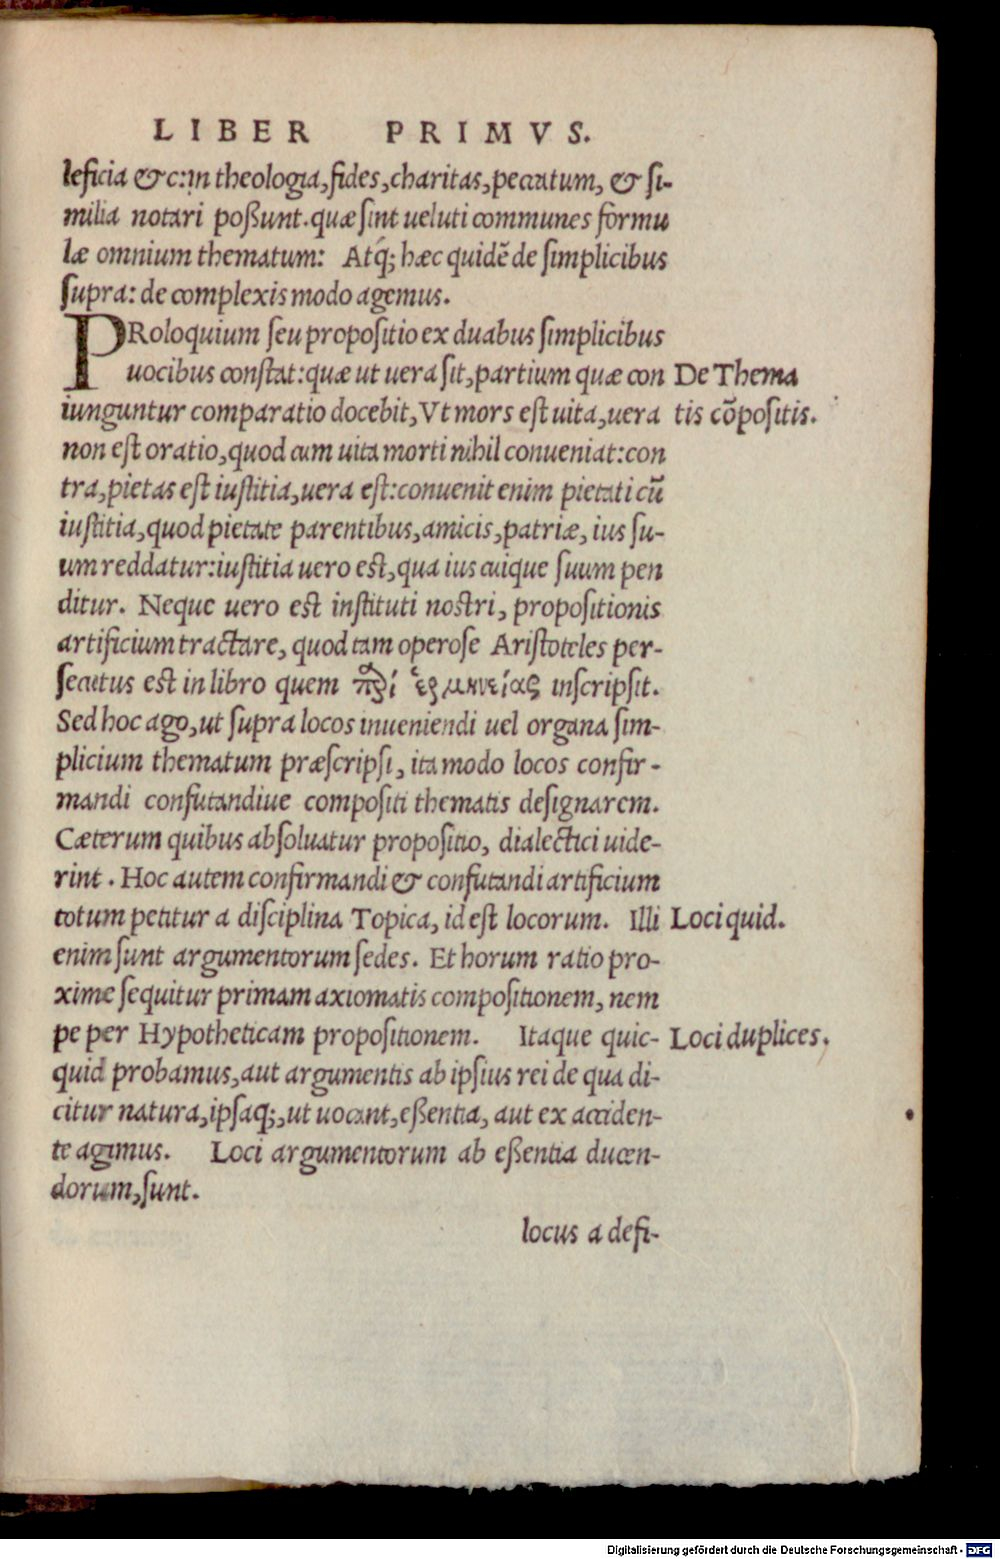 LIBER PRIMVS.
leficia & c: in theologia, fides, charitas, peccatum, & si-
milia notari poßunt. quæ sint ueluti communes formu
læ omnium thematum: Atq́; hæc quidẽ de simplicibus
supra: de complexis modo agemus.
PRoloquium seu propositio ex duabus simplicibus
uocibus constat: quæ ut uera sit, partium quæ con
De Thema
iunguntur comparatio docebit, Vt mors est uita, uera
tis cõpositis.
non est oratio, quod cum uita morti nihil conueniat: con
tra, pietas est iustitia, uera est: conuenit enim pietati cũ
iustitia, quod pietate parentibus, amicis, patriæ, ius su-
um reddatur: iustitia uero est, qua ius cuique suum pen
ditur. Neque uero est instituti nostri, propositionis
artificium tractare, quod tam operose Aristoteles per-
secutus est in libro quem περί ἑρμηνείας inscripsit.
Sed hoc ago, ut supra locos inueniendi uel organa sim-
plicium thematum præscripsi, ita modo locos confir-
mandi confutandiue compositi thematis designarem.
Cæterum quibus absoluatur propositio, dialectici uide-
rint. Hoc autem confirmandi & confutandi artificium
totum petitur a disciplina Topica, id est locorum. Illi
Loci quid.
enim sunt argumentorum sedes. Et horum ratio pro-
xime sequitur primam axiomatis compositionem, nem
pe per Hypotheticam propositionem. Itaque quic-
Loci duplices.
quid probamus, aut argumentis ab ipsius rei de qua di-
citur natura, ipsaq;, ut uocant, eßentia, aut ex acciden-
te agimus. Loci argumentorum ab eßentia ducen-
dorum, sunt.
locus a defi-
Digitalisierung gefördert durch die Deutsche Forschungsgemeinschaft - DFG